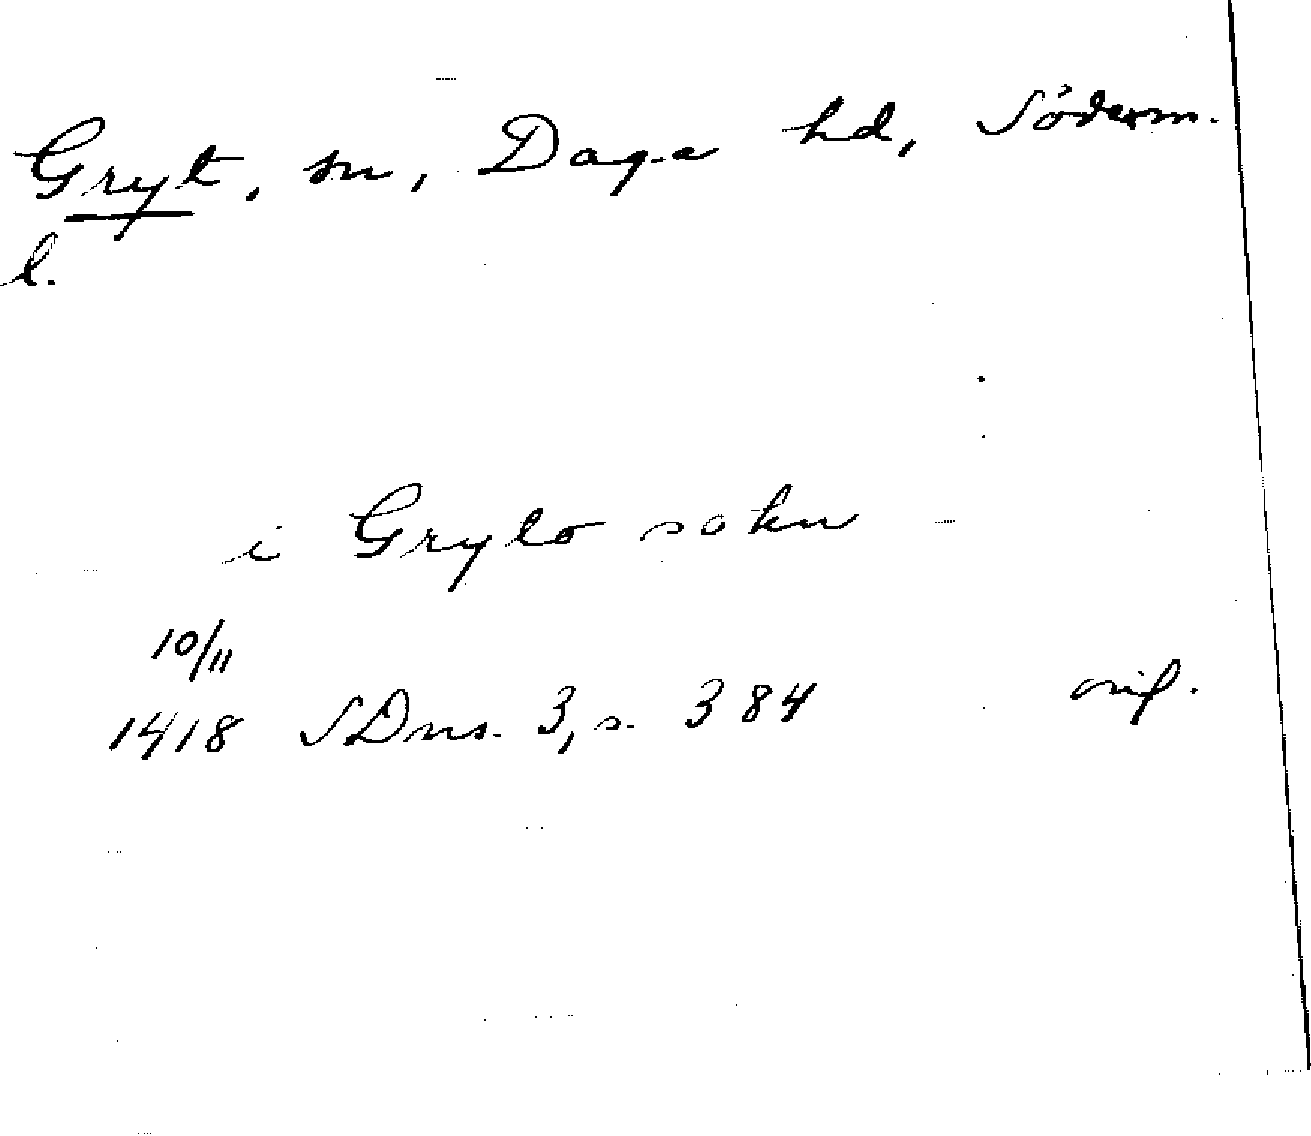 Gryt, sn, Daga hd, Söderm.
l.
i Gryto sokn
10/11
1418 SDns. 3, s. 384 orig.